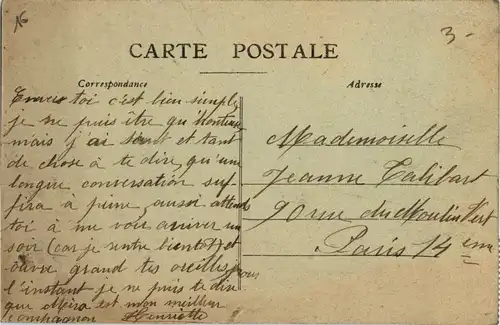 3-
CARTE POSTALE
Correspondance
Adresse
Envers toi c'est bien simple
je ne puis être qu'honteuse
mais j'ai tant et tant
de chose à te dire, qu'une
longue conversation suf-
fira à peine, aussi attend
toi à me voir arriver un
soir (car je rentre bientot) et
ouvre grand tes oreilles, pour
l'instant je ne puis te dire
que est mon meilleur
compagnon Henriette
Mademoiselle
Jeanne Talibart
90 rue du Moulin Vert
Paris 14 em